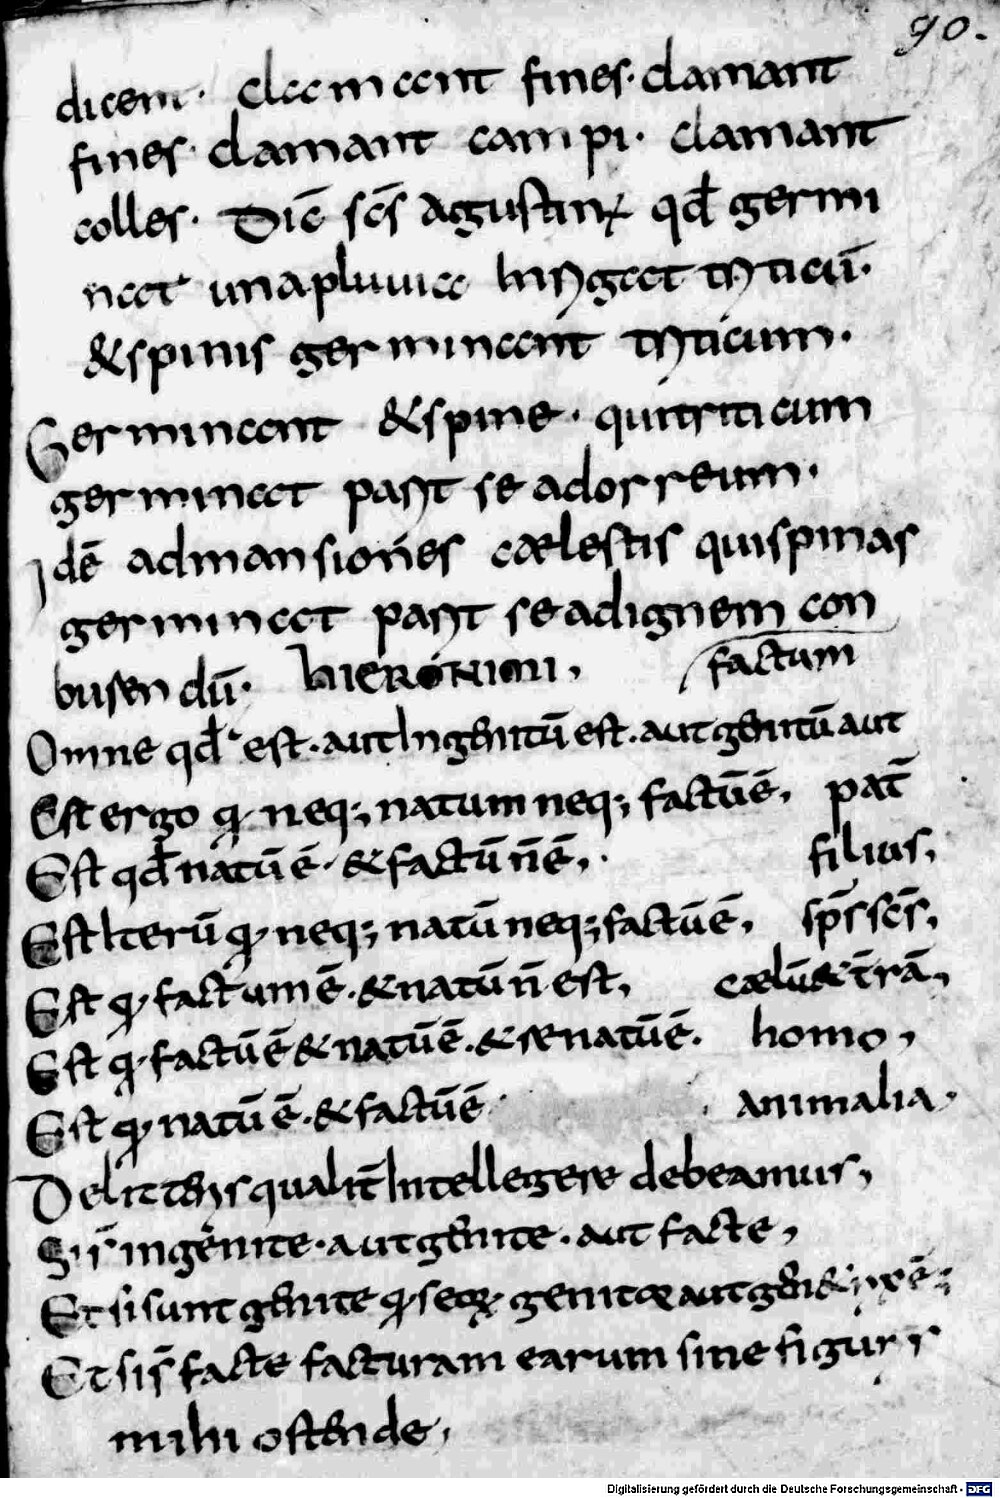 90.
dicent· clamant fines· clamant
fines· clamant campi· clamant
colles· Dic̄ sc̄s agustinus qđ germi
nat una pluuia surgat triticū·
& spinis germinant triticum·
Germinant & spine· qui triticum
germinat parat se ad orreum·
Idē ad mansiones cælestis qui spinas
germinat parat se ad ignem con
busendū· hieronimi,
factum
Omne qđ est· aut ingenitū est· aut genitū aut
Est ergo q neq; natum neq; factū ē, pat̄
Est qđ natū ē· & factū n̄ ē, filius,
Est iterū q neq; natū neq; factū ē, sp̄s sc̄s,
Est q factum ē· & natū n̄ est, cælū & t̄rā,
Est q factū ē & natū ē· & renatū ē· homo,
Est q natū ē· & factū ē animalia·
De litteris qualit̄ intellegere debeamus,
Sī ingenite· aut genite· aut facte,
Et si sunt genite q
Et si s̄ facte facturam earum sine figuris
mihi ostende,
Digitalisierung gefördert durch die Deutsche Forschungsgemeinschaft - DFG